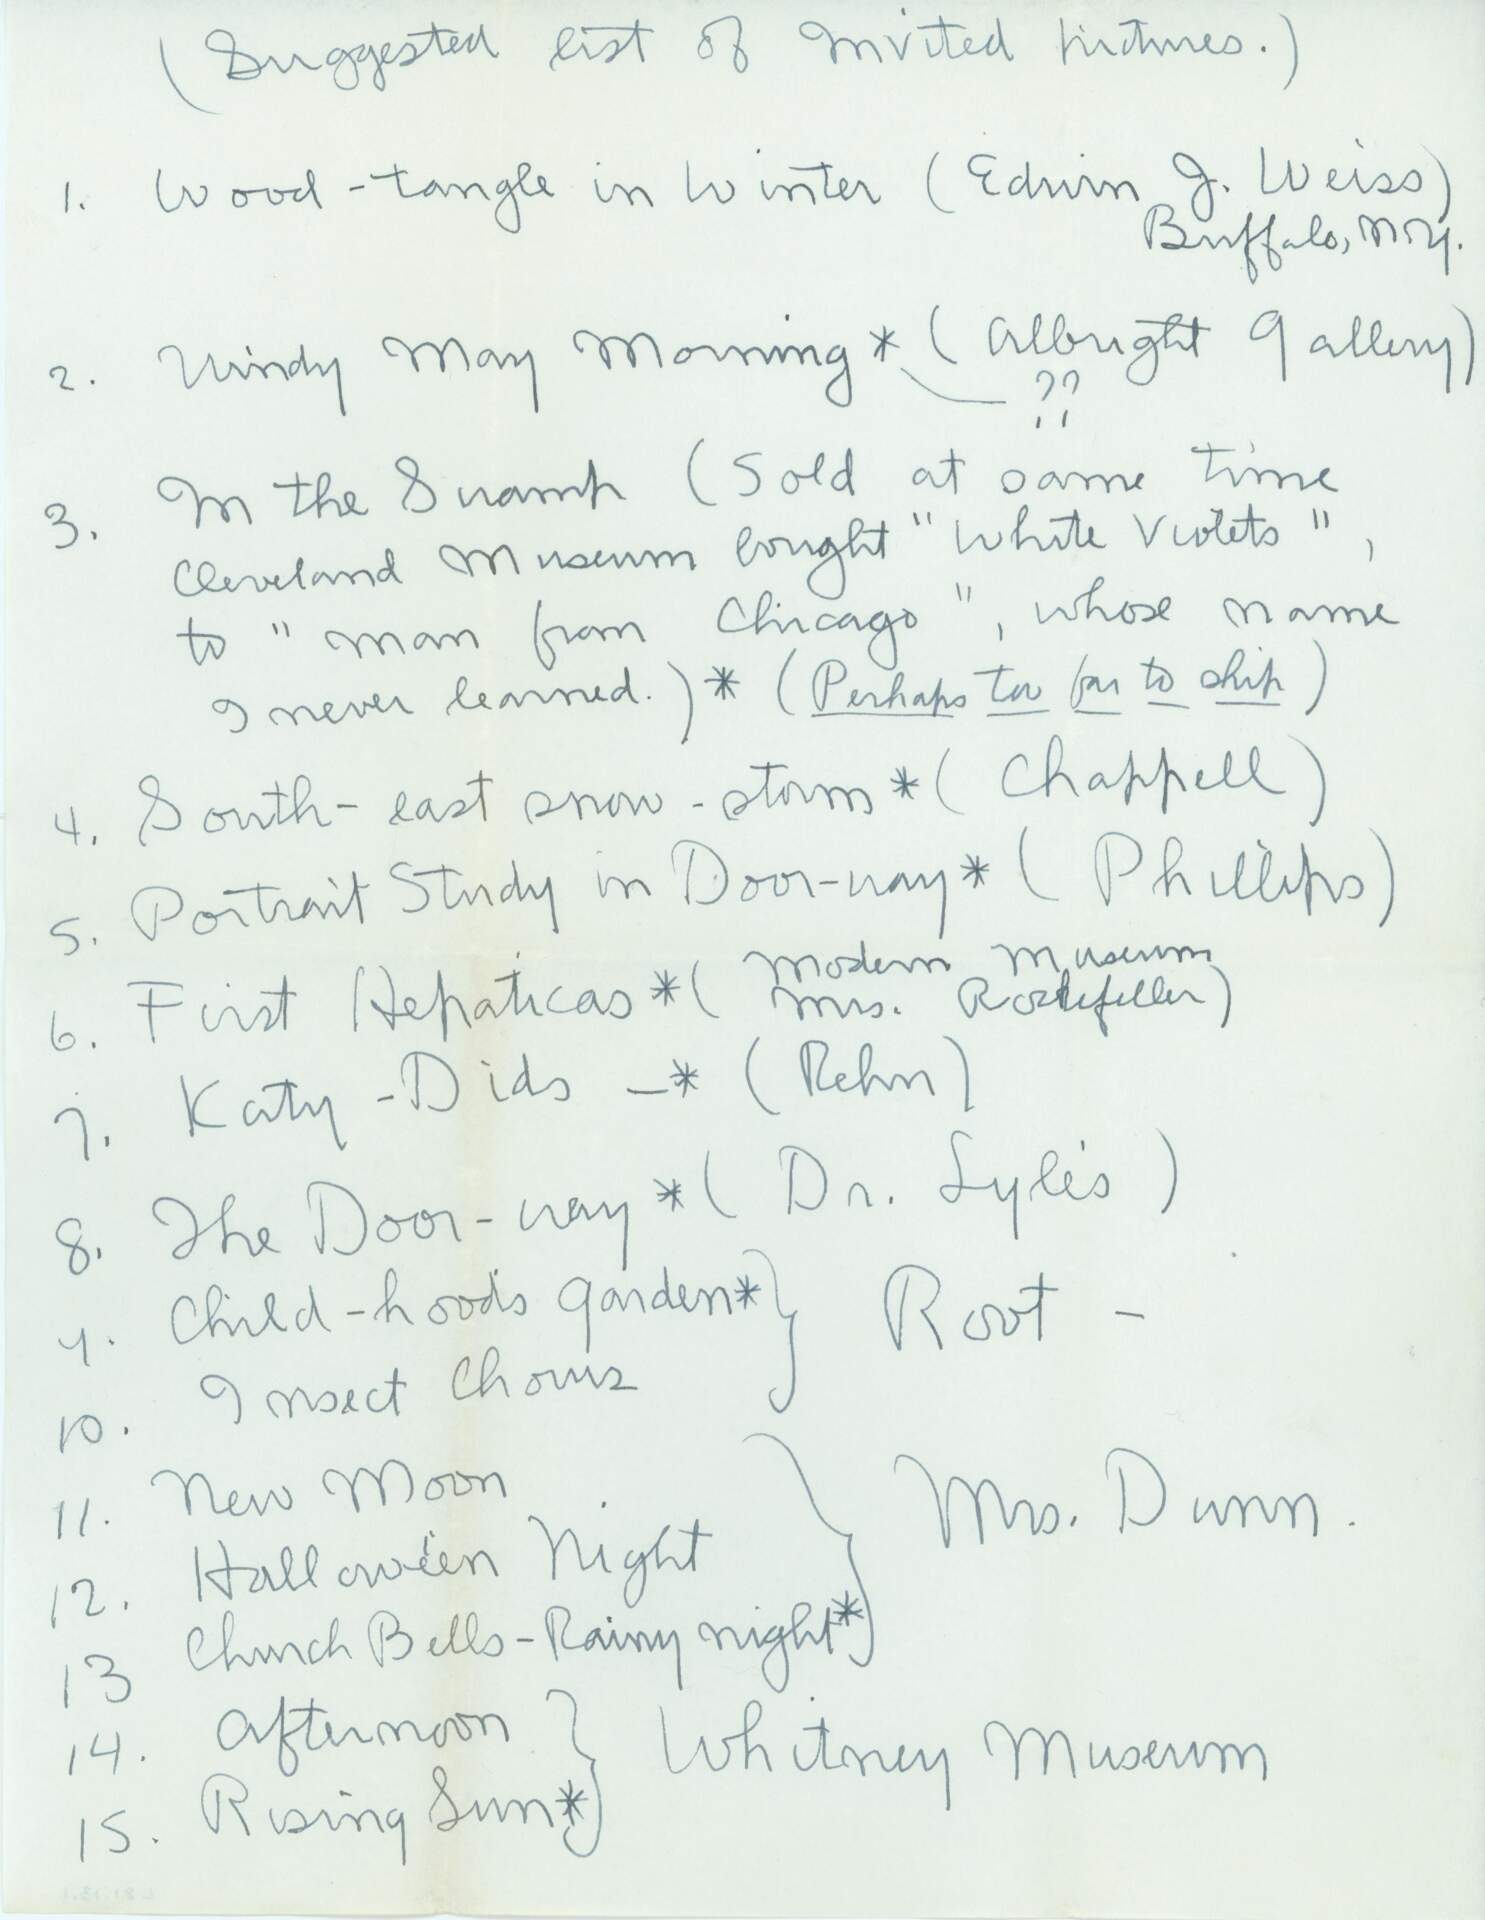 (Suggested list of invited pictures.)
1. Wood-tangle in Winter (Edwin J. Weiss)
Buffalo, N.Y.
2. Windy May Morning * (Albright Gallery)
??
3. In the Swamp (Sold at same time
Cleveland Museum bought "White Violets",
to "man from Chicago", whose name
I never learned.) * (Perhaps too far to ship)
4. South-east snow-storm * (Chappell)
5. Portrait Study in Door-way * (Phillips)
6. First Hepaticas * (Modern Museum
Mrs. Rockefeller)
7. Katy-Dids - * (Rehn)
8. The Door-way * (Dr. Lyle's)
9. Child-hoods garden * } Root -
10. Insect Chorus
11. New Moon
12. Hallowe'en Night } Mrs. Dunn.
13 Church Bells - Rainy night *
14. Afternoon } Whitney Museum
15. Rising Sun *